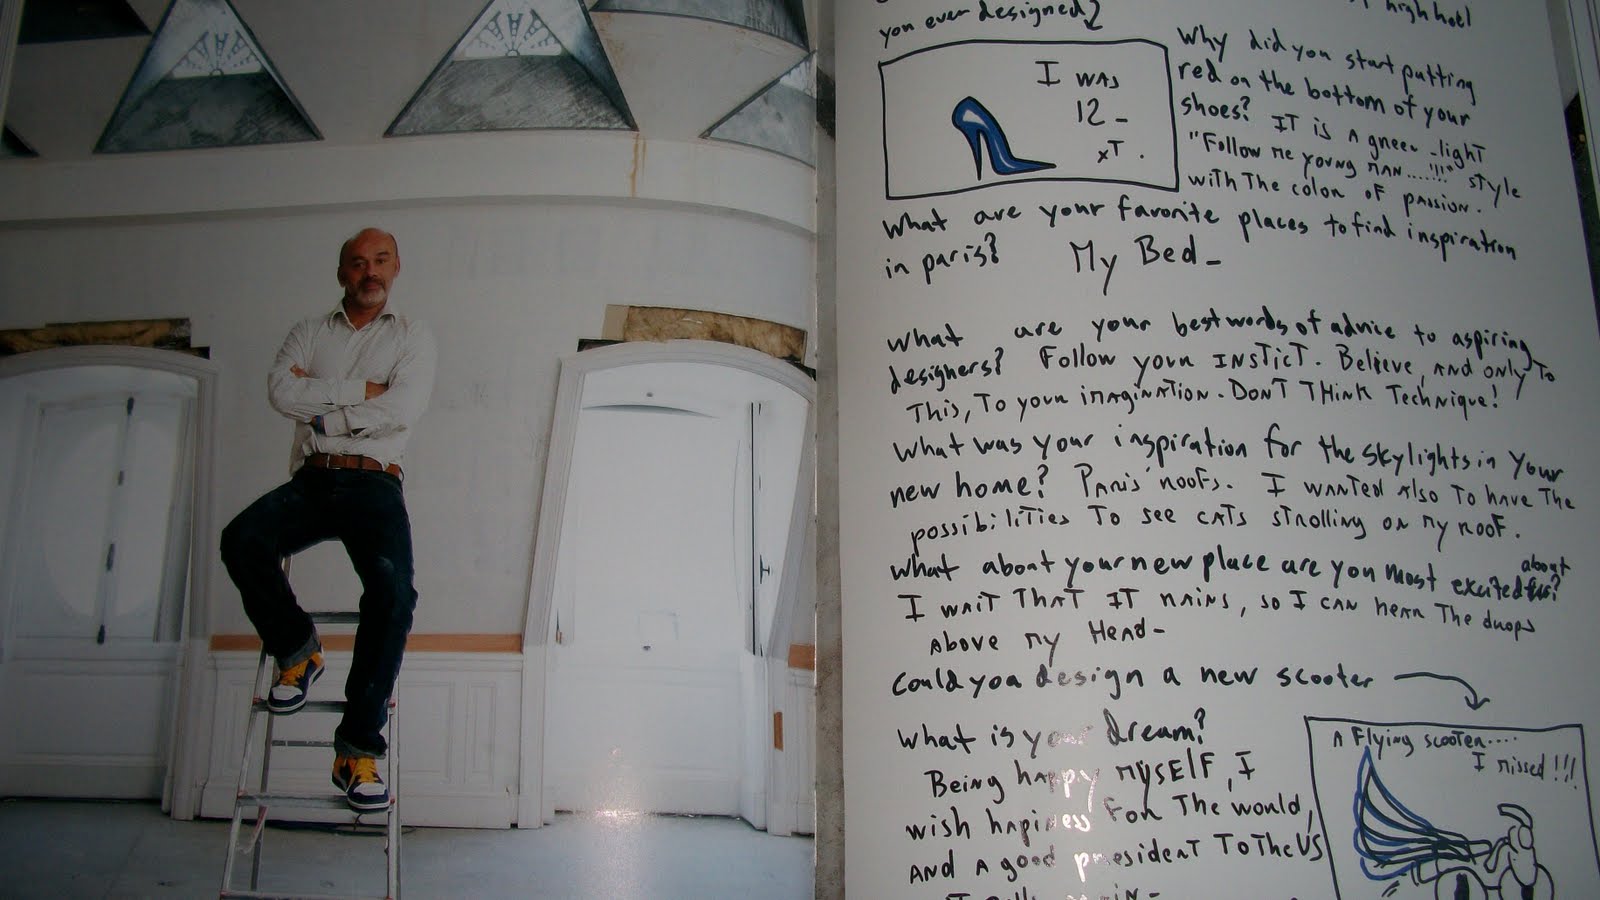 high heel
you ever designed?
I WAS
12 _
xT.
Why did you start putting
red on the bottom of your
shoes? IT is A green_light
"Follow me young man.......!!!" style
with The color of passion.
What are your favorite places to find inspiration
in paris? My Bed_
What are your best words of advice to aspiring
designers? Follow your INSTiCT. Believe, AND only To
This, To your imAginATion. DON'T THink Technique!
What was your inspiration for the skylights in your
new home? PAris' roofs. I wAnTed Also To hAve The
possibiliTies To see cATs sTrolling on my roof.
What about your new place are you most excited about
for?
I wAiT THAT IT RAins, so I cAn heAr The drops
Above my HeAd_
Could you design a new scooter
What is your dream?
Being happy MYSElF, I
wish hapiness For The world,
AND A good presidenT To The US
A Flying scooTer....
I missed!!!